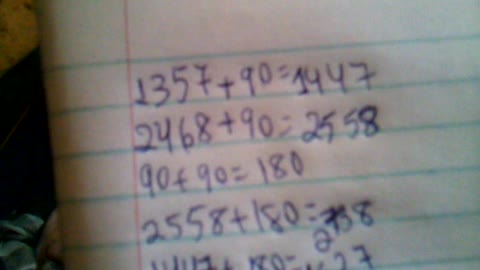 1357+90=1447
2468+90=2558
90+90=180
2558+180=2738
1447+180=